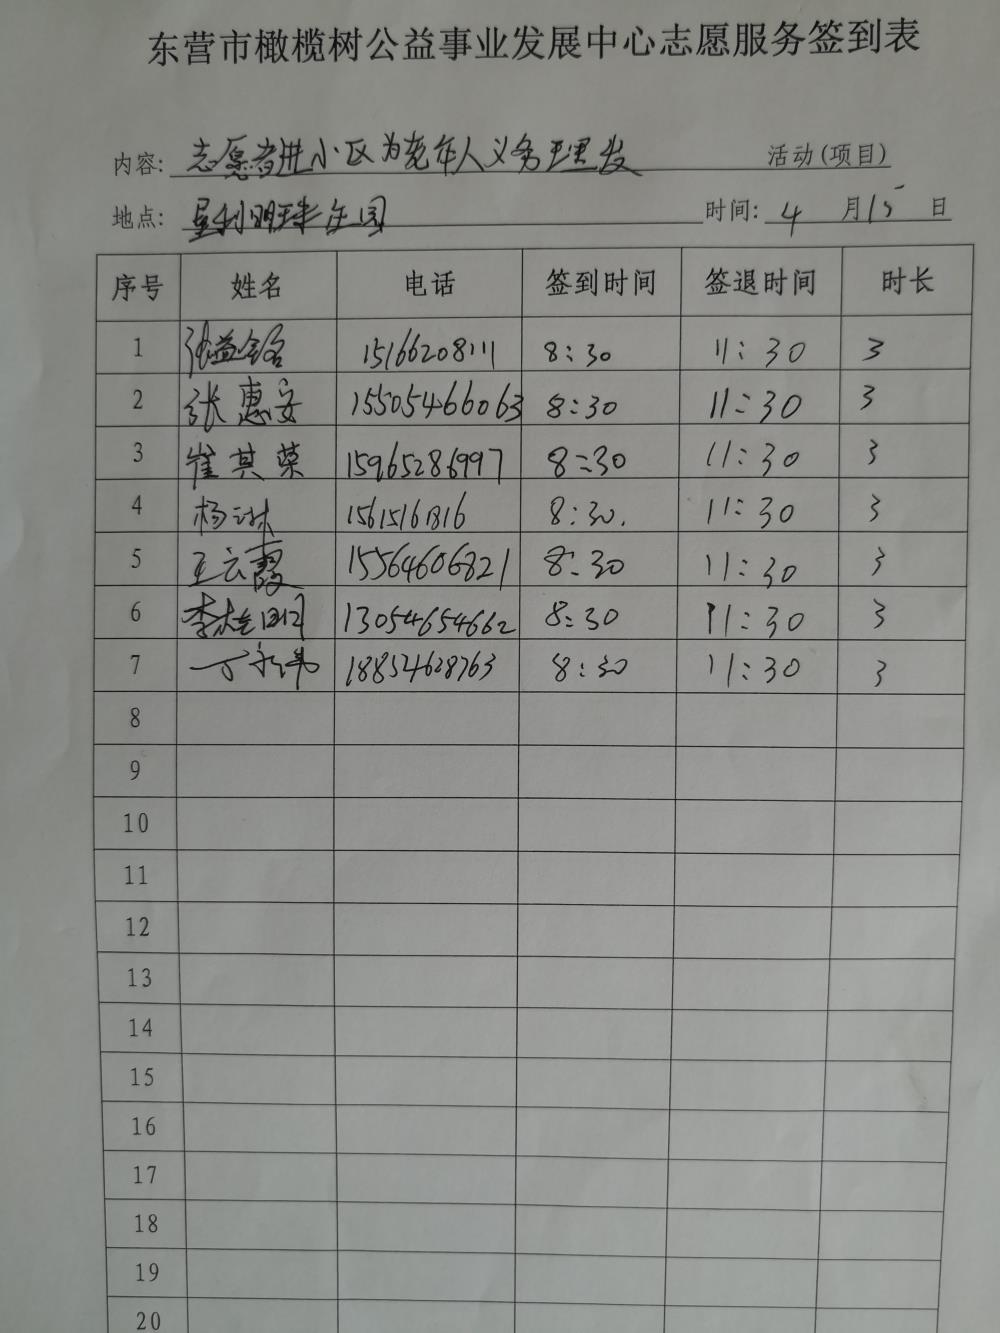 东营市橄榄树公益事业发展中心志愿服务签到表
内容: 志愿者进小区为老年人义务理发 活动(项目)
地点: 星利明珠庄园 时间: 4 月 15 日
序号 姓名 电话 签到时间 签退时间 时长
1 张益铭 15166208111 8:30 11:30 3
2 张惠安 15505466063 8:30 11:30 3
3 崔其荣 15965286997 8:30 11:30 3
4 杨琳 15615161816 8:30. 11:30 3
5 王云霞 15564606821 8:30 11:30 3
6 李 13054654662 8:30 11:30 3
7 丁 18854628763 8:30 11:30 3
8
9
10
11
12
13
14
15
16
17
18
19
20